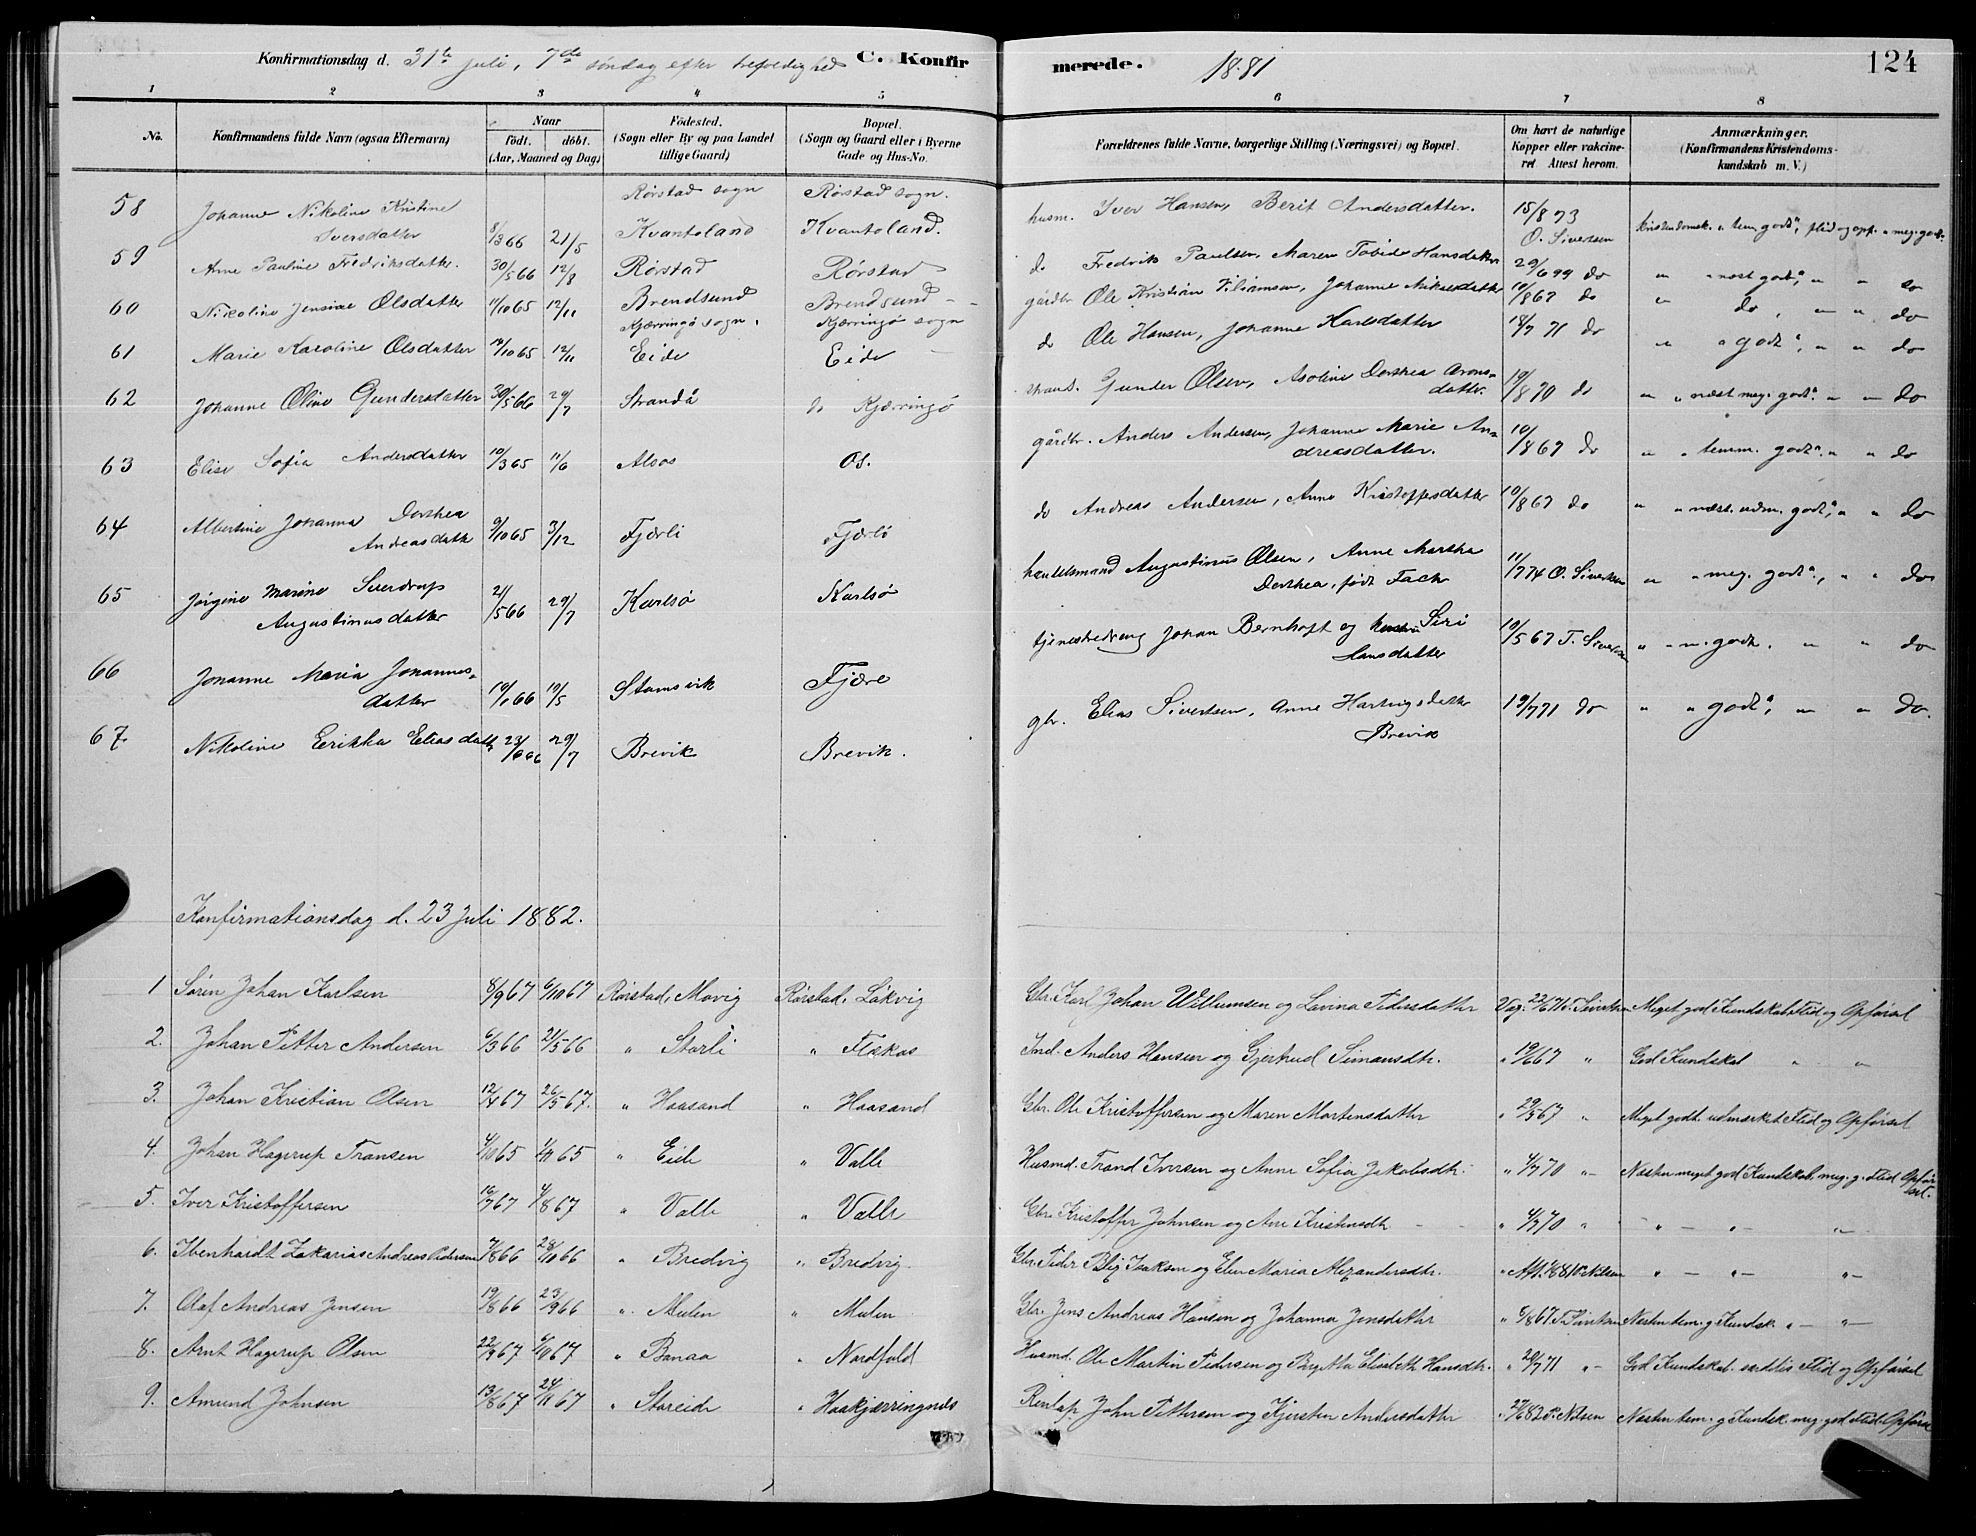 Konfirmationsdag d. 31te juli, 7de søndag efter trefoldighed C. Konfirmerede. 1881 124
1 2 3 4 5 6 7 8
No. Konfirmandens fulde Navn (ogsaa Efternavn) Naar født. døbt. (Aar, Maaned og Dag) Födested. (Sogn eller By og paa Landet tillige Gaard) Bopæl. (Sogn og Gaard eller i Byerne Gade og Hus-No. Forældrenes fulde Navne, borgerlige Stilling (Næringsvei) og Bopæl. Om havt de naturlige Kopper eller vakcineret Attest herom. Anmærkninger. (Konfirmandens Kristendomskundskab m. V.)
58 Johanne Nikoline Kristine Iversdatter 8/3 66 21/5 Rørstad sogn Kvantoland Rørstad sogn. Kvantoland. husm. Iver Hansen, Berit Andersdatter. 15/8 73 O. Sivertsen kristendomsk. „tem. godt", flid og opf. „meg. godt.
59 Ane Pauline Fredriksdatter. 30/5 66 12/8 Rørstad Rørstad do Fredrik Paulsen, Maren Tobide Hansdatter do " „næst godt", " " do
60 Nikoline Jensine Olsdatter 11/10 65 12/11 Brendsund Brendsund gårdbr Ole Kristian Johanne 10/8 67 do " do, " " do
61 Marie Karoline Olsdatter 19/10 65 12/11 Kjærringø sogn. Eide Kjærringø sogn Eide do Ole Hansen, Johanne Karlsdatter 18/7 71 do " „godt", " " do
62 Johanne Oline Gundersdatter 30/5 66 29/7 Strandå do Kjærringø Gunder Olsen, Asoline Dorthea Aronsdatter. 19/8 70 do " „næst meg. godt". " " do
63 Elise Sofia Andersdatter 10/3 65 11/6 Alsos Os. gårdbr. Anders Andersen, Johanne Marie Andreasdatter. 10/8 67 do " „temm. godt". " " do
64 Albertine Johanna Dorthea Andreasdatte 9/10 65 3/12 Fjærli Fjærli do Andreas Andersen, Anne Kristoffersdatter 10/8 67 do " „næst. udm. godt", " " do
65 Jørgine Marine Sverdrup Augustinusdatter 21/5 66 29/7 Karlsø Karlsø handelsmand Augustinus Olsen, Anne Martha Dorthea, født Fack 11/7 74 O. Sivertsen " „meg. godt"., " " do
66 Johanne Maria Johannesdatter 10/1 66 19/5 Stamsvik Fjære tjenestedreng Johan Bernhoft og Siri Hansdatter 10/5 67 T. Sivertsen " „m. godt. " " do
67. Nikoline Eerikka Eliasdatt 23/6 66 29/7 Brevik Brevik. gbr. Elias Sivertsen, Anne Hartvigsdatter Brevik 19/7 71 do " „godt", " " do.
Konfirmationsdag d. 23 Juli 1882.
1 Sørin Johan Karlsen 8/9 67 6/10 67 Rørstad, Movig Rørstad, Løkvig Gbr. Karl Johan Willumsen og Lavina Pedersdatter Vag. 22/6 71 T. Sivertsen Meget god Kundskab Flid og Opførsel
2. Johan Petter Andersen 6/3 66 21/5 66 " Storli " Flskas Ind. Anders Hansen og Gjertrud Simonsdtr. " 19/6 67 " God Kundskab " "
3. Johan Kristian Olsen 12/4 67 26/5 67. " Haasand " Haasand Gbr. Ole Kristoffersen og Maren Martensdatter " 29/5 67 " Meget godt. udmærket Flid og Opførsel
4. Johan Hagerup Transen 4/10 65 4/11 65 " Eide " Valle Husmd. Trand Iversen og Anne Sofia Jakobsdtr. " 4/7 70 " Næsten meget god Kundskab, meg. g. Flid Opførsel.
5. Iver Kristoffersen 16/7 67 4/8 67 " Valle " Valle Gbr. Kristoffer Johnsen og Ane Kristensdtr. " 4/7 70 " " — " — " —
6. Ibenhardt Zakarias Andreas Pedersen 7/8 66 28/10 66 " Bredvig " Bredvig. Gbr. Peder Blix Isaksen og Elen Maria Alexandersdtr. " Nilsen " — " — " —
7. Olaf Andreas Jensen 19/8 66 23/9 66 " Mulen " Mulen Gbr. Jens Andreas Hansen og Johanna Jensdatter " 6/8 67 T. Sivertsen Næsten tem. g Kundsk. " — " —
8. Arnt Hagerup Olsen 22/9 67 6/10 67 " Banaa " Nordfold Husmd. Ole Martin Pedersen og Birgitta Elisabeth Hansdtr. " 20/7 71 " — God Kundskab. Flid og Opførsel
9. Amund Johnsen 13/8 67 24/11 67 " Storeide " Haakjærringnes Renlap. John Pettersen og Kjersten Andersdatter " 27/6 82 P. Nilsen Næsten tem. g Kundsk. meg. god Flid. Opførsel